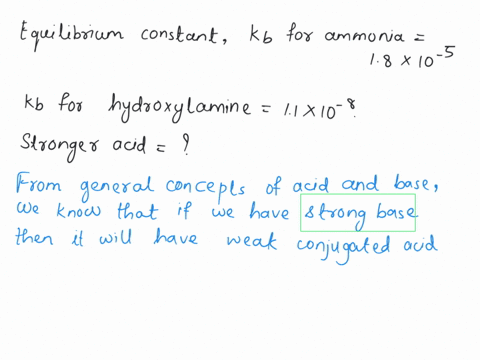 Equilibrium constant, kb for ammonia =
1.8 × 10⁻⁵
kb for hydroxylamine = 1.1 × 10⁻⁸.
Stronger acid = ?
From general concepts of acid and base,
we know that if we have strong base
then it will have weak conjugated acid